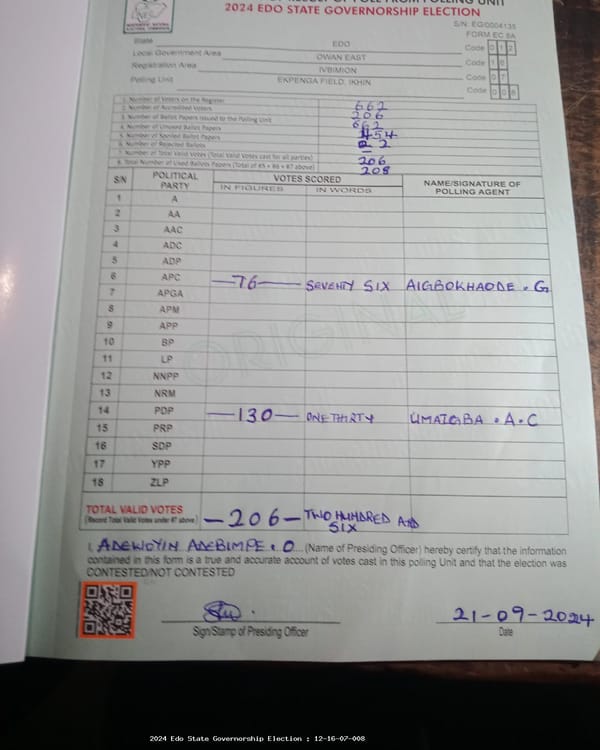 2024 EDO STATE GOVERNORSHIP ELECTION
S/N: EG/0004135
FORM EC 8A
State EDO Code 0 1 2
Local Government Area OWAN EAST Code 1 6
Registration Area IVBIMION Code 0 7
Polling Unit EKPENGA FIELD, IKHIN Code 0 0 8
1. Number of Voters on the Register 662
2. Number of Accredited Voters 206
3. Number of Ballot Papers Issued to the Polling Unit 662
4. Number of Unused Ballot Papers 454
5. Number of Spoiled Ballot Papers 2
6. Number of Rejected Ballots –
7. Number of Total Valid Votes (Total Valid Votes cast for all parties) 206
8. Total Number of Used Ballots Papers (Total of #5 + #6 + #7 above) 208
S/N POLITICAL PARTY VOTES SCORED NAME/SIGNATURE OF POLLING AGENT
IN FIGURES IN WORDS
1 A
2 AA
3 AAC
4 ADC
5 ADP
6 APC —76— SEVENTY SIX AIGBOKHAODE . G
7 APGA
8 APM
9 APP
10 BP
11 LP
12 NNPP
13 NRM
14 PDP —130— ONE THIRTY UMAIGBA . A . C
15 PRP
16 SDP
17 YPP
18 ZLP
ORIGINAL
TOTAL VALID VOTES
(Record Total Valid Votes under #7 above) —206— TWO HUNDRED AND SIX
I, ADEWOYIN ADEBIMPE . O (Name of Presiding Officer) hereby certify that the information
contained in this form is a true and accurate account of votes cast in this polling Unit and that the election was
CONTESTED/NOT CONTESTED
Sign/Stamp of Presiding Officer
21-09-2024
Date
2024 Edo State Governorship Election : 12-16-07-008